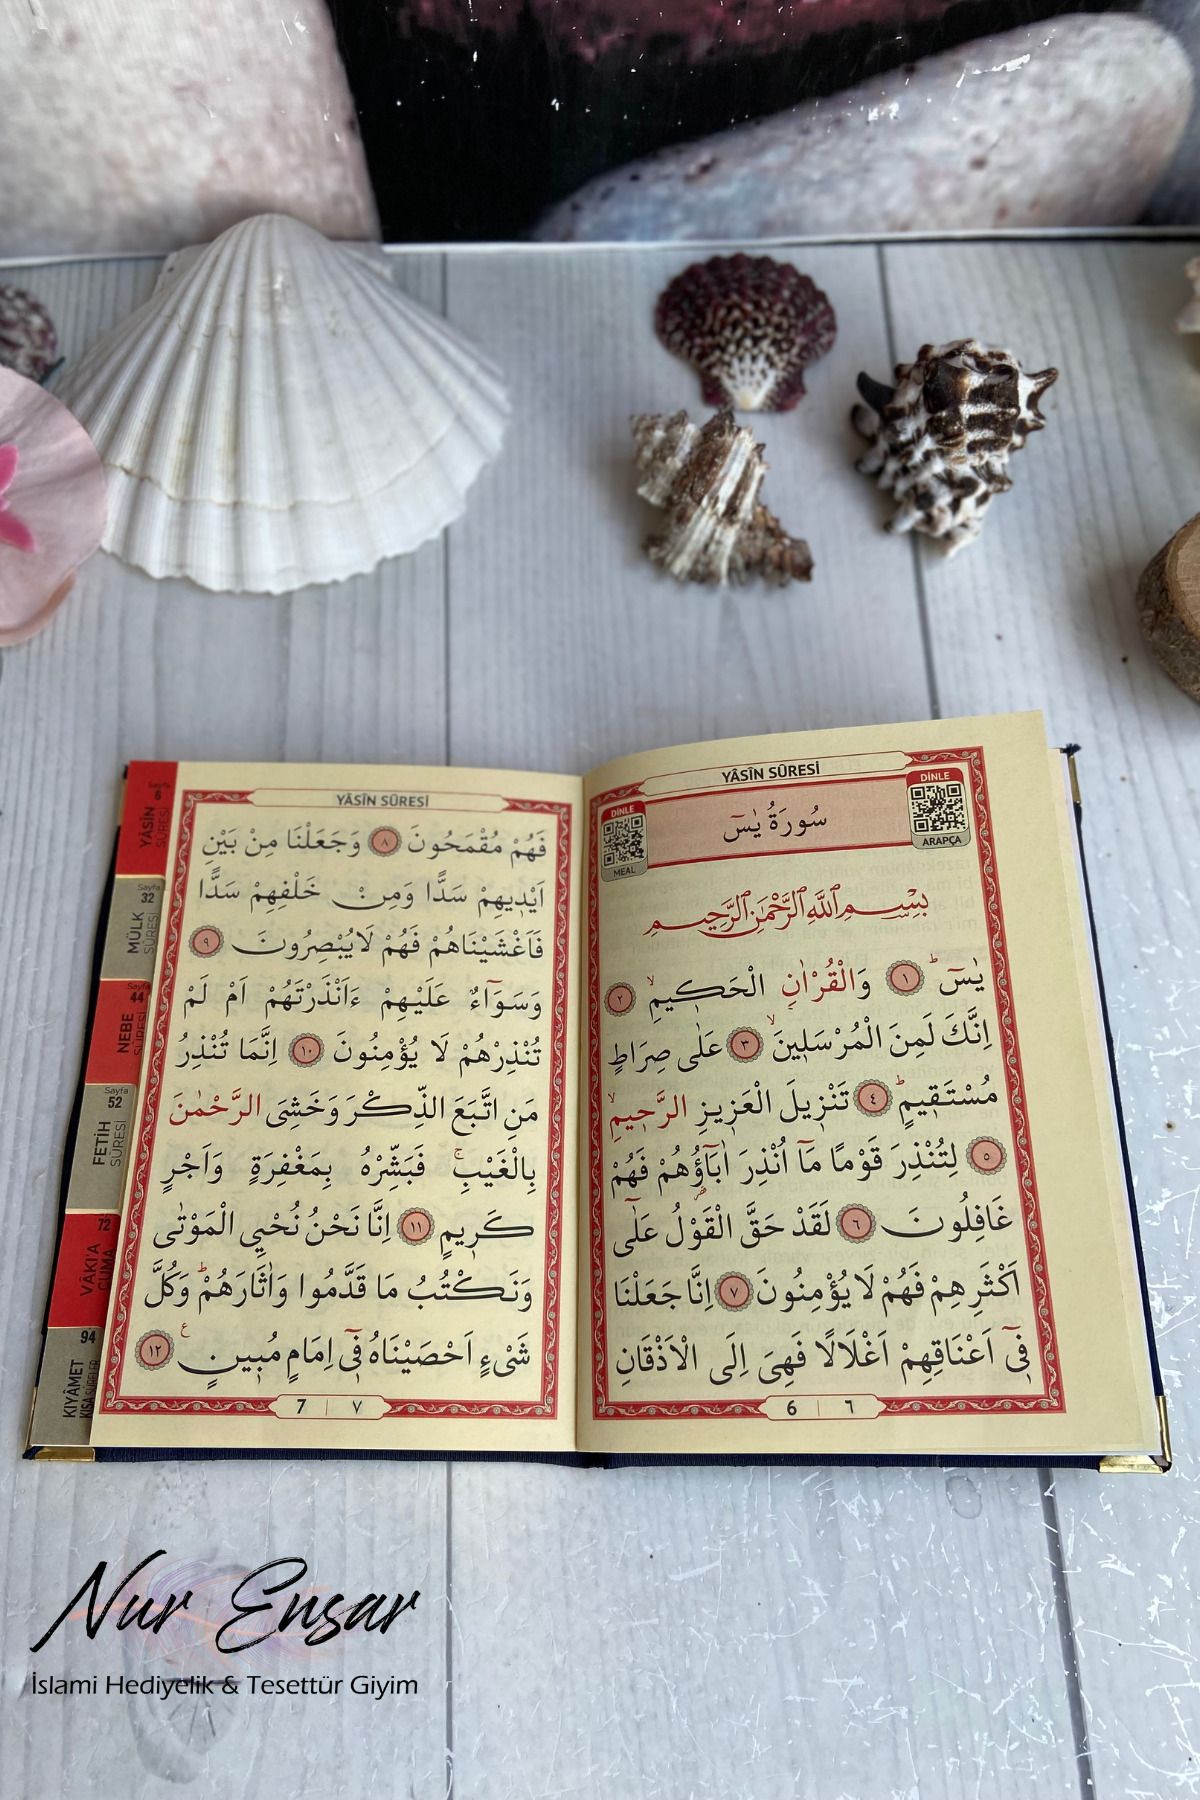 YÂSÎN SÛRESİ
DİNLE
ARAPÇA
سُورَةُ يٰسٓ
DİNLE
MEAL
بِسْــمِ اللّٰهِ الرَّحْمٰنِ الرَّحِيمِ
يٰسٓۜ ﴿١﴾ وَالْقُرْاٰنِ الْحَكٖيمِۙ ﴿٢﴾
اِنَّكَ لَمِنَ الْمُرْسَلٖينَۙ ﴿٣﴾ عَلٰى صِرَاطٍ
مُسْتَقٖيمٍۜ ﴿٤﴾ تَنْزٖيلَ الْعَزٖيزِ الرَّحٖيمِۙ
﴿٥﴾ لِتُنْذِرَ قَوْمًا مَٓا اُنْذِرَ اٰبَٓاؤُ۬هُمْ فَهُمْ
غَافِلُونَ ﴿٦﴾ لَقَدْ حَقَّ الْقَوْلُ عَلٰٓى
اَكْثَرِهِمْ فَهُمْ لَا يُؤْمِنُونَ ﴿٧﴾ اِنَّا جَعَلْنَا
فٖٓي اَعْنَاقِهِمْ اَغْلَالًا فَهِيَ اِلَى الْاَذْقَانِ
6 | ٦
YÂSÎN SÛRESİ
فَهُمْ مُقْمَحُونَ ﴿٨﴾ وَجَعَلْنَا مِنْ بَيْنِ
اَيْدٖيهِمْ سَدًّا وَمِنْ خَلْفِهِمْ سَدًّا
فَاَغْشَيْنَاهُمْ فَهُمْ لَا يُبْصِرُونَ ﴿٩﴾
وَسَوَٓاءٌ عَلَيْهِمْ ءَاَنْذَرْتَهُمْ اَمْ لَمْ
تُنْذِرْهُمْ لَا يُؤْمِنُونَ ﴿١٠﴾ اِنَّمَا تُنْذِرُ
مَنِ اتَّبَعَ الذِّكْرَ وَخَشِيَ الرَّحْمٰنَ
بِالْغَيْبِۚ فَبَشِّرْهُ بِمَغْفِرَةٍ وَاَجْرٍ
كَرٖيمٍ ﴿١١﴾ اِنَّا نَحْنُ نُحْيِي الْمَوْتٰى
وَنَكْتُبُ مَا قَدَّمُوا وَاٰثَارَهُمْۜ وَكُلَّ
شَيْءٍ اَحْصَيْنَاهُ فٖٓي اِمَامٍ مُبٖينٍ ﴿١٢﴾ ع
7 | ٧
Sayfa 6
YÂSÎN SÛRESİ
Sayfa 32
MÜLK SÛRESİ
Sayfa 44
NEBE SÛRESİ
Sayfa 52
FETİH SÛRESİ
72
VÂKI'A CUMA
94
KIYÂMET KISA SÛRELER
Nur Ensar
İslami Hediyelik & Tesettür Giyim